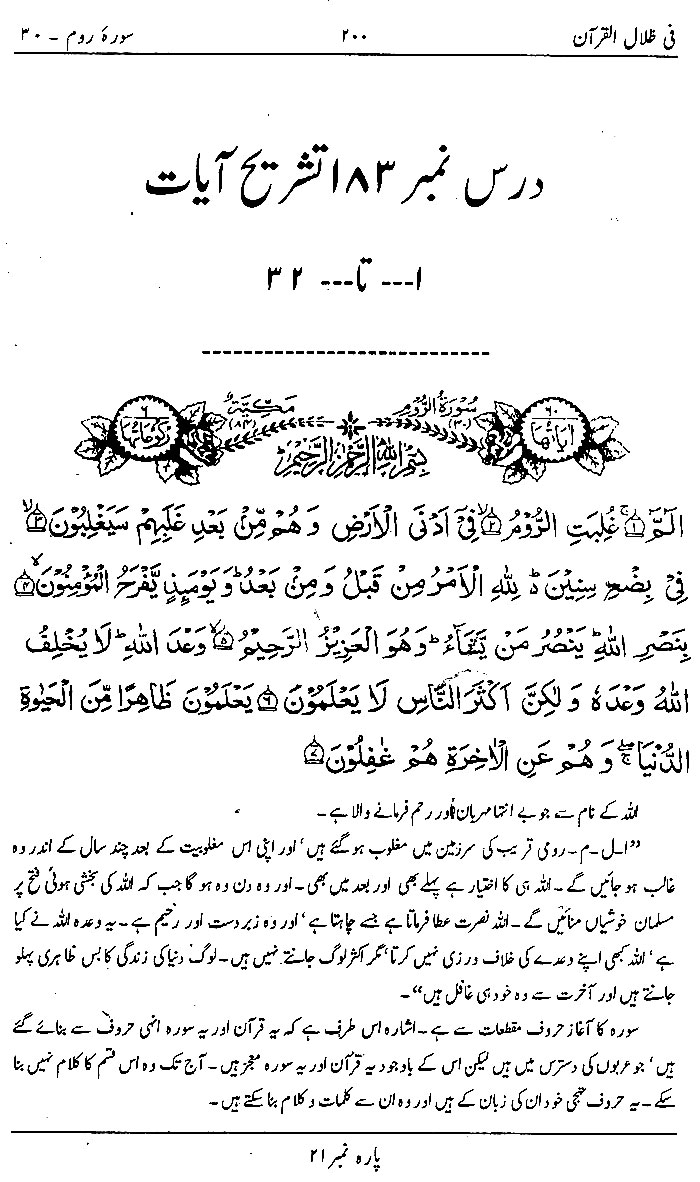 فی ظلال القرآن ۲۰۰ سورۂ روم - ۳۰
درس نمبر ۱۸۳ تشریح آیات
۱--- تا--- ۳۲
۶۰ ایاتہا سُوْرَةُ الرُّوْمِ (۳۰) مَکِّیَّةٌ (۸۴) ۶ رکوعاتہا
بِسْمِ اللّٰهِ الرَّحْمٰنِ الرَّحِیْمِ
الٓمّٓ ﴿۱﴾ غُلِبَتِ الرُّوْمُ ﴿۲﴾ فِیْۤ اَدْنَی الْاَرْضِ وَ هُمْ مِّنْۢ بَعْدِ غَلَبِهِمْ سَیَغْلِبُوْنَ ﴿۳﴾
فِیْ بِضْعِ سِنِیْنَ ؕ لِلّٰهِ الْاَمْرُ مِنْ قَبْلُ وَ مِنْۢ بَعْدُ ؕ وَ یَوْمَىِٕذٍ یَّفْرَحُ الْمُؤْمِنُوْنَ ﴿۴﴾
بِنَصْرِ اللّٰهِ ؕ یَنْصُرُ مَنْ یَّشَآءُ ؕ وَ هُوَ الْعَزِیْزُ الرَّحِیْمُ ﴿۵﴾ وَعْدَ اللّٰهِ ؕ لَا یُخْلِفُ
اللّٰهُ وَعْدَهٗ وَ لٰكِنَّ اَكْثَرَ النَّاسِ لَا یَعْلَمُوْنَ ﴿۶﴾ یَعْلَمُوْنَ ظَاهِرًا مِّنَ الْحَیٰوةِ
الدُّنْیَا ۖۚ وَ هُمْ عَنِ الْاٰخِرَةِ هُمْ غٰفِلُوْنَ ﴿۷﴾
اللہ کے نام سے جو بے انتہا مہربان اور رحم فرمانے والا ہے۔
”ا۔ل۔م۔ رومی قریب کی سرزمین میں مغلوب ہو گئے ہیں‘ اور اپنی اس مغلوبیت کے بعد چند سال کے اندر وہ
غالب ہو جائیں گے۔ اللہ ہی کا اختیار ہے پہلے بھی اور بعد میں بھی۔ اور وہ دن وہ ہو گا جب کہ اللہ کی بخشی ہوئی فتح پر
مسلمان خوشیاں منائیں گے۔ اللہ نصرت عطا فرماتا ہے جسے چاہتا ہے‘ اور وہ زبردست اور رحیم ہے۔ یہ وعدہ اللہ نے کیا
ہے‘ اللہ کبھی اپنے وعدے کی خلاف ورزی نہیں کرتا‘ مگر اکثر لوگ جانتے نہیں ہیں۔ لوگ دنیا کی زندگی کا بس ظاہری پہلو
جانتے ہیں اور آخرت سے وہ خود ہی غافل ہیں“۔
سورہ کا آغاز حروف مقطعات سے ہے۔ اشارہ اس طرف ہے کہ یہ قرآن اور یہ سورہ انہی حروف سے بنائے گئے
ہیں‘ جو عربوں کی دسترس میں ہیں لیکن اس کے باوجود یہ قرآن اور یہ سورہ معجز ہیں۔ آج تک وہ اس قسم کا کلام نہیں بنا
سکے۔ یہ حروف تہجی خود ان کی زبان کے ہیں اور وہ ان سے کلمات و کلام بنا سکتے ہیں۔
پارہ نمبر ۲۱